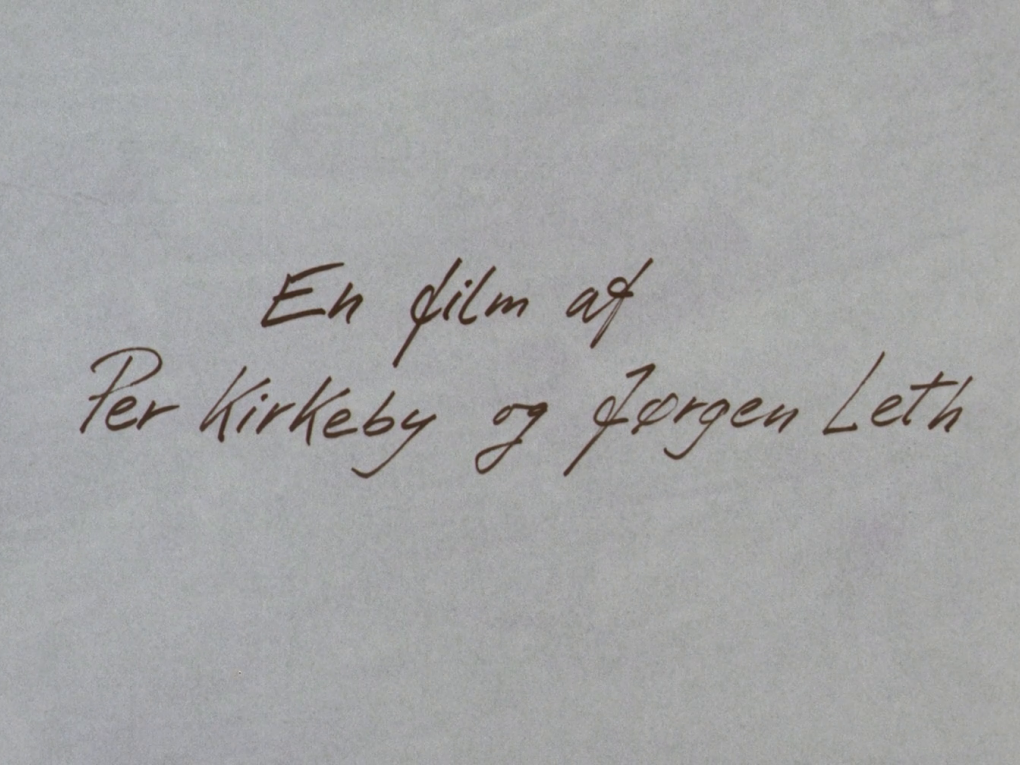 En film af
Per Kirkeby og Jørgen Leth